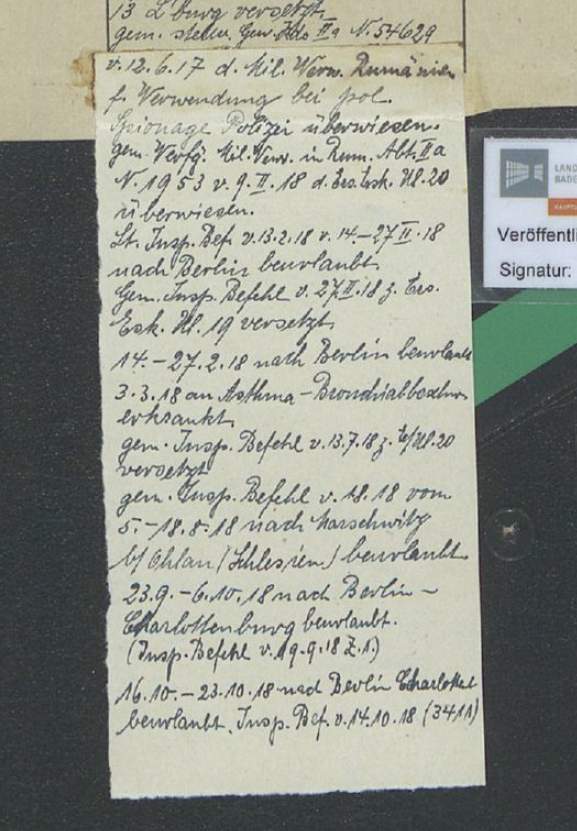 13 L'burg versetzt
gem. stellv. Gen. Kdo IIa N. 54629
v. 12.6.17 d. Mil. Verw. Rumänien
f. Verwendung bei pol.
Spionage Polizei überwiesen.
gem. Verfg. Mil. Verw. in Rum. Abt. IIa
N. 1953 v. 9.II.18 d. Ers. Esk. Hl. 20
überwiesen.
Lt. Insp. Bef. v. 13.2.18 v. 14.-27.II.18
nach Berlin beurlaubt.
Gem. Insp. Befehl v. 27.II.18 z. Ers.
Esk. Hl. 19 versetzt
14.-27.2.18 nach Berlin beurlaubt
3.3.18 an Asthma-
erkrankt.
gem. Insp. Befehl v. 13.7.18 z. Hl. 20
versetzt
gem. Insp. Befehl v. 18.18 vom
5.-18.8.18 nach Marschwitz
b/ Ohlau (Schlesien) beurlaubt
23.9.-6.10.18 nach Berlin-
Charlottenburg beurlaubt.
(Insp. Befehl v. 19.9.18 Z.1.)
16.10.-23.10.18 nach Berlin Charlottbg
beurlaubt. Insp. Bef. v. 14.10.18 (3411)
LAND
BADE
HAUPT
Veröffentli
Signatur: